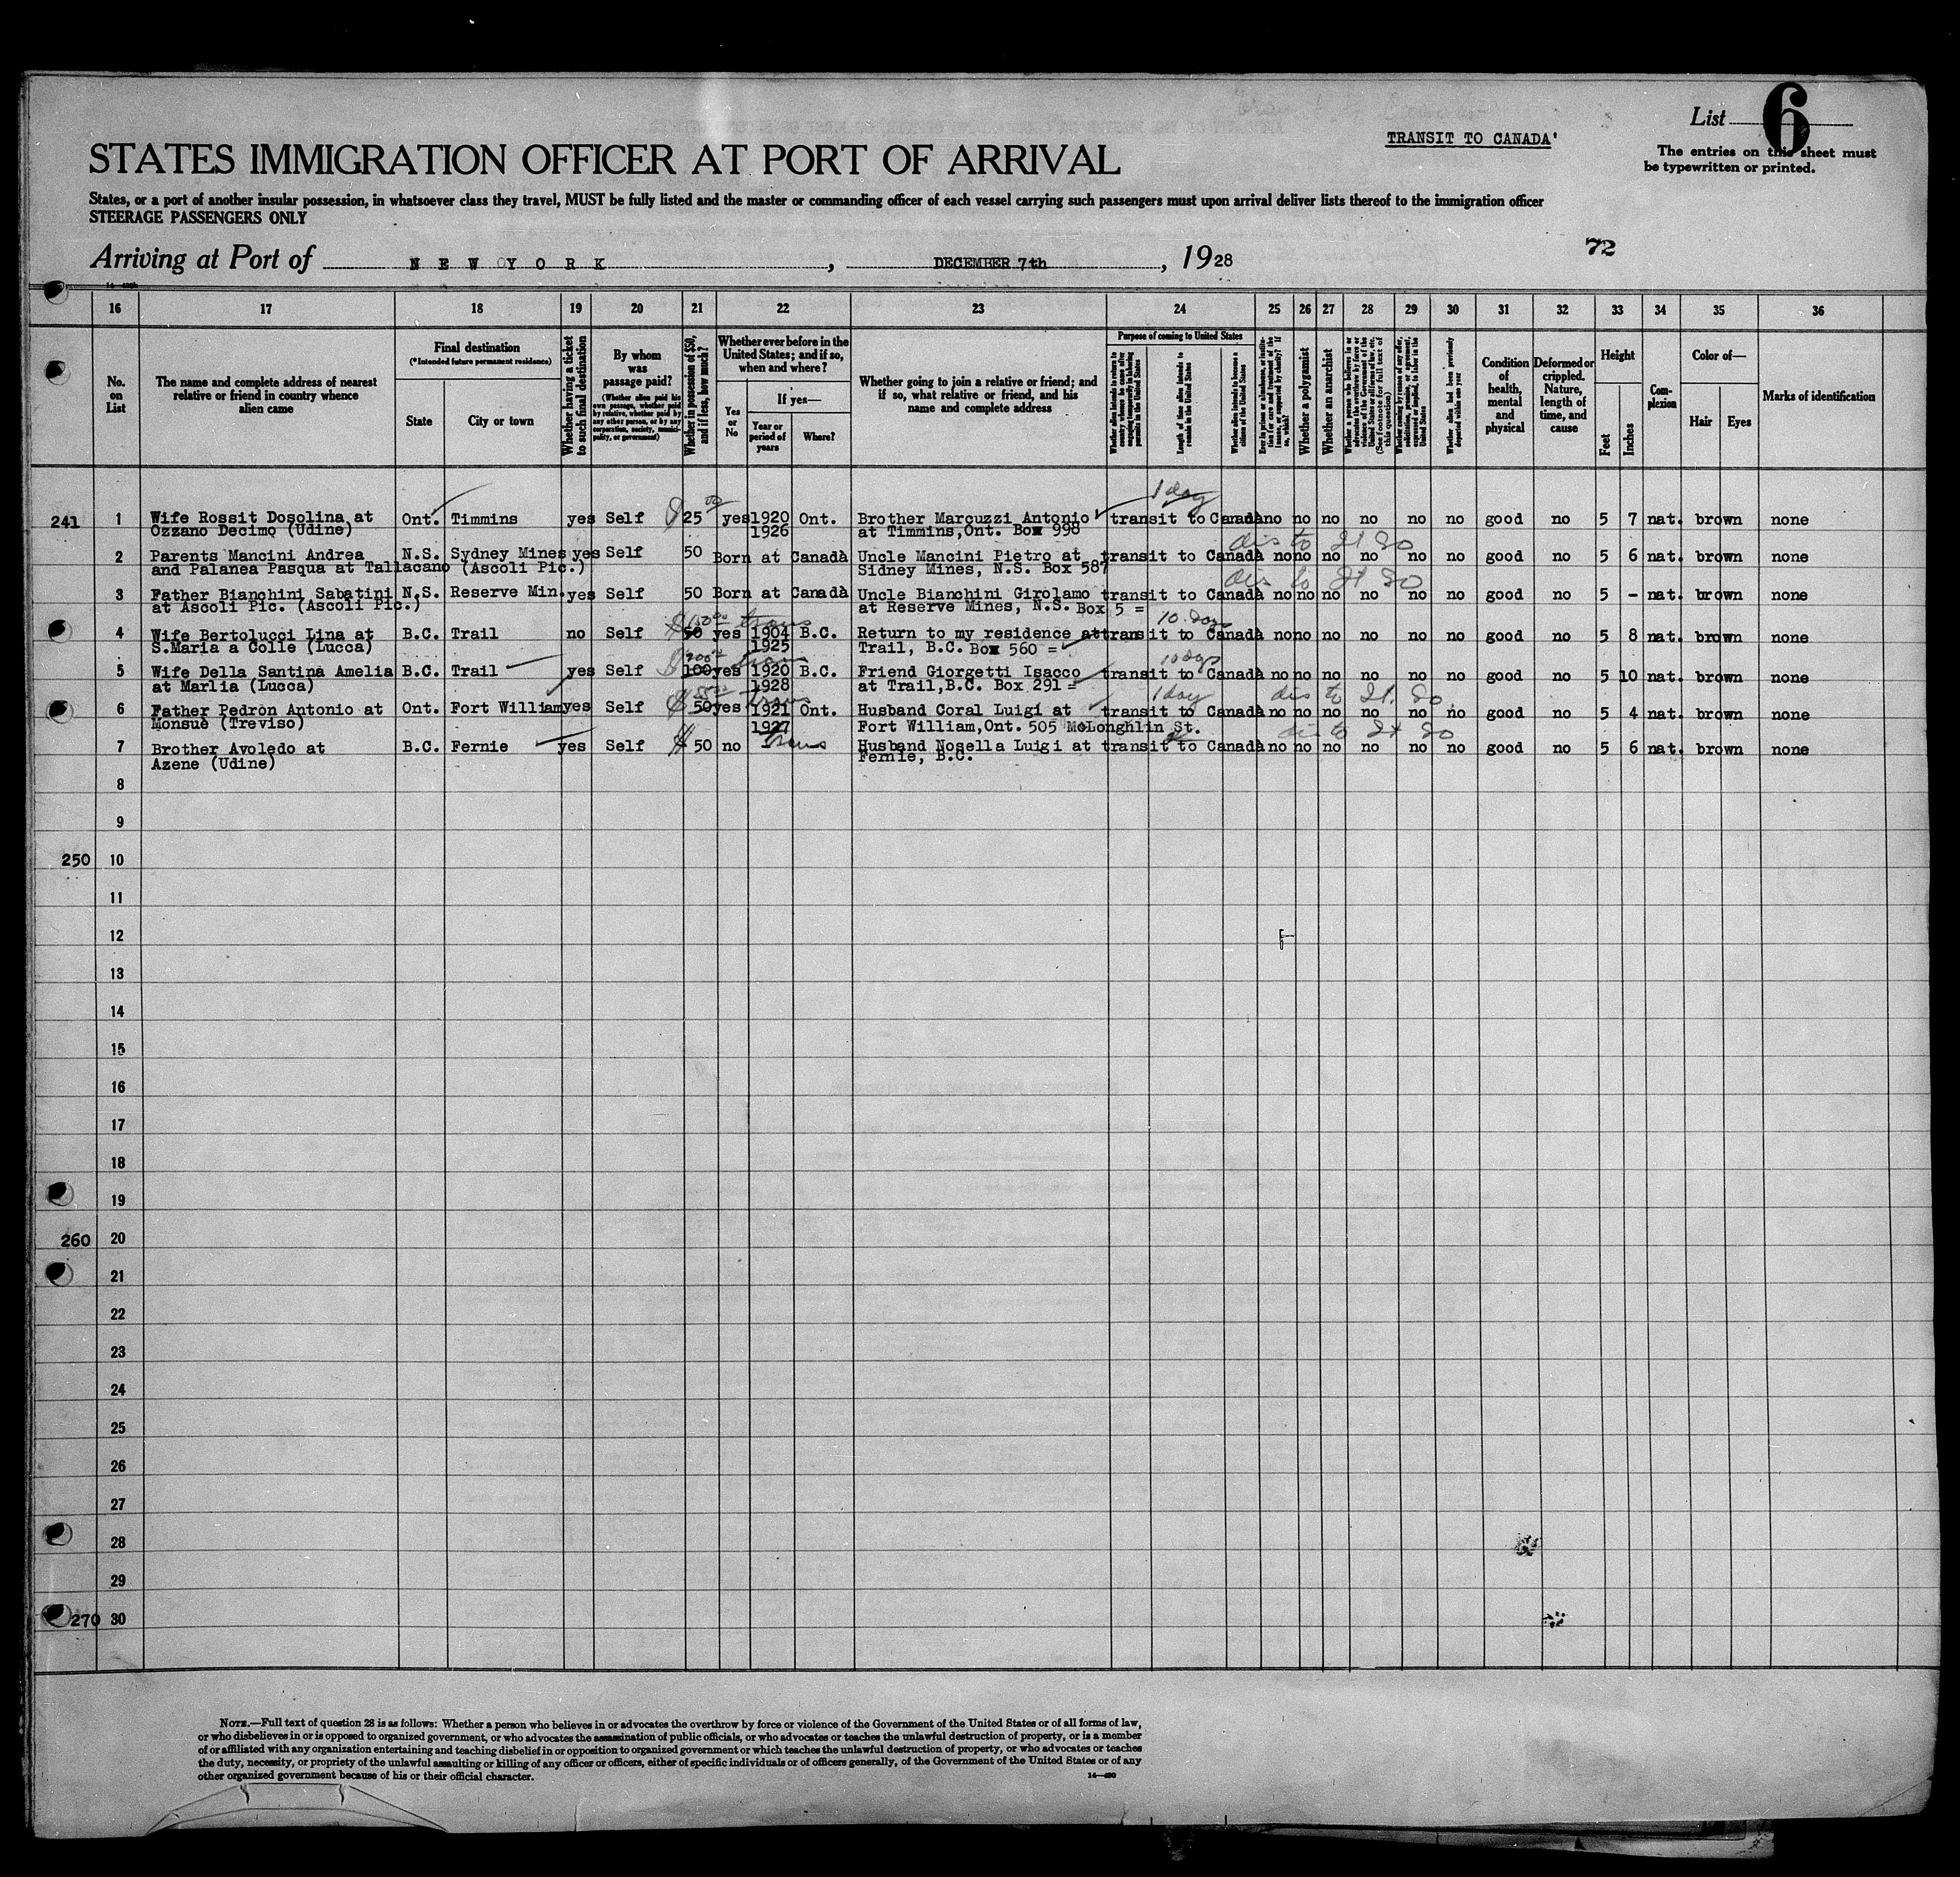 List 6
TRANSIT TO CANADA'
The entries on this sheet must
be typewritten or printed.
STATES IMMIGRATION OFFICER AT PORT OF ARRIVAL
States, or a port of another insular possession, in whatsoever class they travel, MUST be fully listed and the master or commanding officer of each vessel carrying such passengers must upon arrival deliver lists thereof to the immigration officer
STEERAGE PASSENGERS ONLY
72
Arriving at Port of NEW YORK, DECEMBER 7th, 1928
16 17 18 19 20 21 22 23 24 25 26 27 28 29 30 31 32 33 34 35 36
No. on List
The name and complete address of nearest relative or friend in country whence alien came
Final destination
(*Intended future permanent residence)
State
City or town
Whether having a ticket to such final destination
By whom was passage paid?
(Whether alien paid his own passage, whether paid by relative, whether paid by any other person, or by any corporation, society, municipality, or government)
Whether in possession of $50, and if less, how much?
Whether ever before in the United States; and if so, when and where?
Yes or No
If yes—
Year or period of years
Where?
Whether going to join a relative or friend; and if so, what relative or friend, and his name and complete address
Purpose of coming to United States
Length of time alien intends to remain in the United States
Whether alien intends to become a citizen of the United States
Whether a polygamist
Whether an anarchist
Whether alien had been previously deported within one year
Condition of health, mental and physical
Deformed or crippled. Nature, length of time, and cause
Height
Feet
Inches
Complexion
Color of—
Hair
Eyes
Marks of identification
1 day
241 1 Wife Rossit Dosolina at Ont. Timmins yes Self $25 00 yes 1920 Ont. Brother Marcuzzi Antonio transit to Canada no no no no no no good no 5 7 nat. brown none
Ozzano Decimo (Udine) 1926 at Timmins,Ont. Box 998
2 Parents Mancini Andrea N.S. Sydney Mines yes Self 50 Born at Canadà Uncle Mancini Pietro at transit to Canadà no no no no no no good no 5 6 nat. brown none
and Palanea Pasqua at Tallacano (Ascoli Pic.) Sidney Mines, N.S. Box 587
3 Father Bianchini Sabatini N.S. Reserve Min. yes Self 50 Born at Canadà Uncle Bianchini Girolamo transit to Canadà no no no no no no good no 5 - nat. brown none
at Ascoli Pic. (Ascoli Pic.) at Reserve Mines, N.S. Box 5 =
trans 10 days
4 Wife Bertolucci Lina at B.C. Trail no Self 50 yes 1904 B.C. Return to my residence at transit to Canadà no no no no no no good no 5 8 nat. brown none
S.Maria a Colle (Lucca) 1925 Trail, B.C. Box 560 =
10 dys
5 Wife Della Santina Amelia B.C. Trail yes Self 100 yes 1920 B.C. Friend Giorgetti Isacco transit to Canadà no no no no no no good no 5 10 nat. brown none
at Marlia (Lucca) 1928 at Trail,B.C. Box 291 =
1 day
6 Father Pedron Antonio at Ont. Fort William yes Self 50 yes 1921 Ont. Husband Coral Luigi at transit to Canadà no no no no no no good no 5 4 nat. brown none
Monsuè (Treviso) 1927 Fort William,Ont. 505 McLonghlin St.
7 Brother Avoledo at B.C. Fernie yes Self $ 50 no trans Husband Nosella Luigi at transit to Canadà no no no no no no good no 5 6 nat. brown none
Azene (Udine) Fernie, B.C.
8
9
250 10
11
12
13
14
15
16
17
18
19
260 20
21
22
23
24
25
26
27
28
29
270 30
NOTE.—Full text of question 28 is as follows: Whether a person who believes in or advocates the overthrow by force or violence of the Government of the United States or of all forms of law,
or who disbelieves in or is opposed to organized government, or who advocates the assassination of public officials, or who advocates or teaches the unlawful destruction of property, or is a member
of or affiliated with any organization entertaining and teaching disbelief in or opposition to organized government or which teaches the unlawful destruction of property, or who advocates or teaches
the duty, necessity, or propriety of the unlawful assaulting or killing of any officer or officers, either of specific individuals or of officers generally, of the Government of the United States or of any
other organized government because of his or their official character.